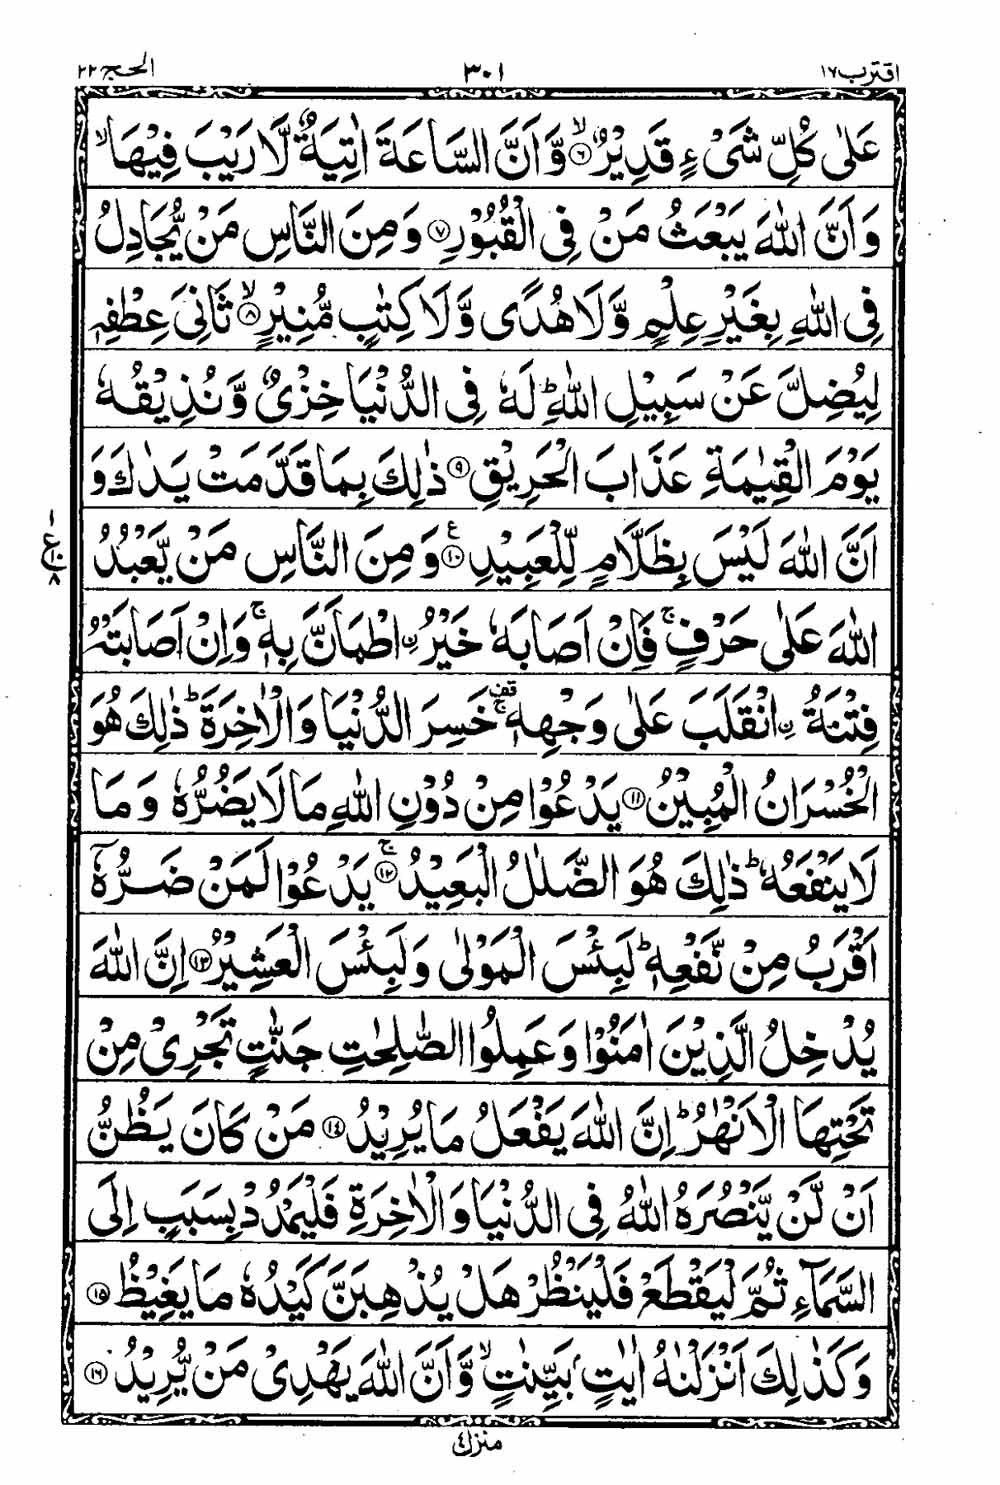 اقترب ١٧
٣٠١
الحج ٢٢
عَلٰى كُلِّ شَىْءٍ قَدِيْرٌ ۙ‏﴿۶﴾ وَّاَنَّ السَّاعَةَ اٰتِيَةٌ لَّا رَيْبَ فِيْهَا ۙ
وَاَنَّ اللّٰهَ يَبْعَثُ مَنْ فِى الْقُبُوْرِ ﴿۷﴾ وَمِنَ النَّاسِ مَنْ يُّجَادِلُ
فِى اللّٰهِ بِغَيْرِ عِلْمٍ وَّلَا هُدًى وَّلَا كِتٰبٍ مُّنِيْرٍ ۙ﴿۸﴾ ثَانِىَ عِطْفِهٖ
لِيُضِلَّ عَنْ سَبِيْلِ اللّٰهِ ؕ لَهٗ فِى الدُّنْيَا خِزْىٌ وَّنُذِيْقُهٗ
يَوْمَ الْقِيٰمَةِ عَذَابَ الْحَرِيْقِ ﴿۹﴾ ذٰلِكَ بِمَا قَدَّمَتْ يَدٰكَ وَ
اَنَّ اللّٰهَ لَيْسَ بِظَلَّامٍ لِّلْعَبِيْدِ ﴿۱۰﴾ ع وَمِنَ النَّاسِ مَنْ يَّعْبُدُ
١
ع ١٠
٨
اللّٰهَ عَلٰى حَرْفٍ ۚ فَاِنْ اَصَابَهٗ خَيْرُ ۨاطْمَاَنَّ بِهٖ ۚ وَاِنْ اَصَابَتْهُ
فِتْنَةُ ۨانْقَلَبَ عَلٰى وَجْهِهٖ قف ۚ خَسِرَ الدُّنْيَا وَالْاٰخِرَةَ ؕ ذٰلِكَ هُوَ
الْخُسْرَانُ الْمُبِيْنُ ﴿۱۱﴾ يَدْعُوْا مِنْ دُوْنِ اللّٰهِ مَا لَا يَضُرُّهٗ وَمَا
لَا يَنْفَعُهٗ ؕ ذٰلِكَ هُوَ الضَّلٰلُ الْبَعِيْدُ ۚ﴿۱۲﴾ يَدْعُوْا لَمَنْ ضَرُّهٗۤ
اَقْرَبُ مِنْ نَّفْعِهٖ ؕ لَبِئْسَ الْمَوْلٰى وَلَبِئْسَ الْعَشِيْرُ ﴿۱۳﴾ اِنَّ اللّٰهَ
يُدْخِلُ الَّذِيْنَ اٰمَنُوْا وَعَمِلُوا الصّٰلِحٰتِ جَنّٰتٍ تَجْرِىْ مِنْ
تَحْتِهَا الْاَنْهٰرُ ؕ اِنَّ اللّٰهَ يَفْعَلُ مَا يُرِيْدُ ﴿۱۴﴾ مَنْ كَانَ يَظُنُّ
اَنْ لَّنْ يَّنْصُرَهُ اللّٰهُ فِى الدُّنْيَا وَالْاٰخِرَةِ فَلْيَمْدُدْ بِسَبَبٍ اِلَى
السَّمَآءِ ثُمَّ لْيَقْطَعْ فَلْيَنْظُرْ هَلْ يُذْهِبَنَّ كَيْدُهٗ مَا يَغِيْظُ ﴿۱۵﴾
وَكَذٰلِكَ اَنْزَلْنٰهُ اٰيٰتٍۭ بَيِّنٰتٍ ۙ وَّاَنَّ اللّٰهَ يَهْدِىْ مَنْ يُّرِيْدُ ﴿۱۶﴾
منزل ٤